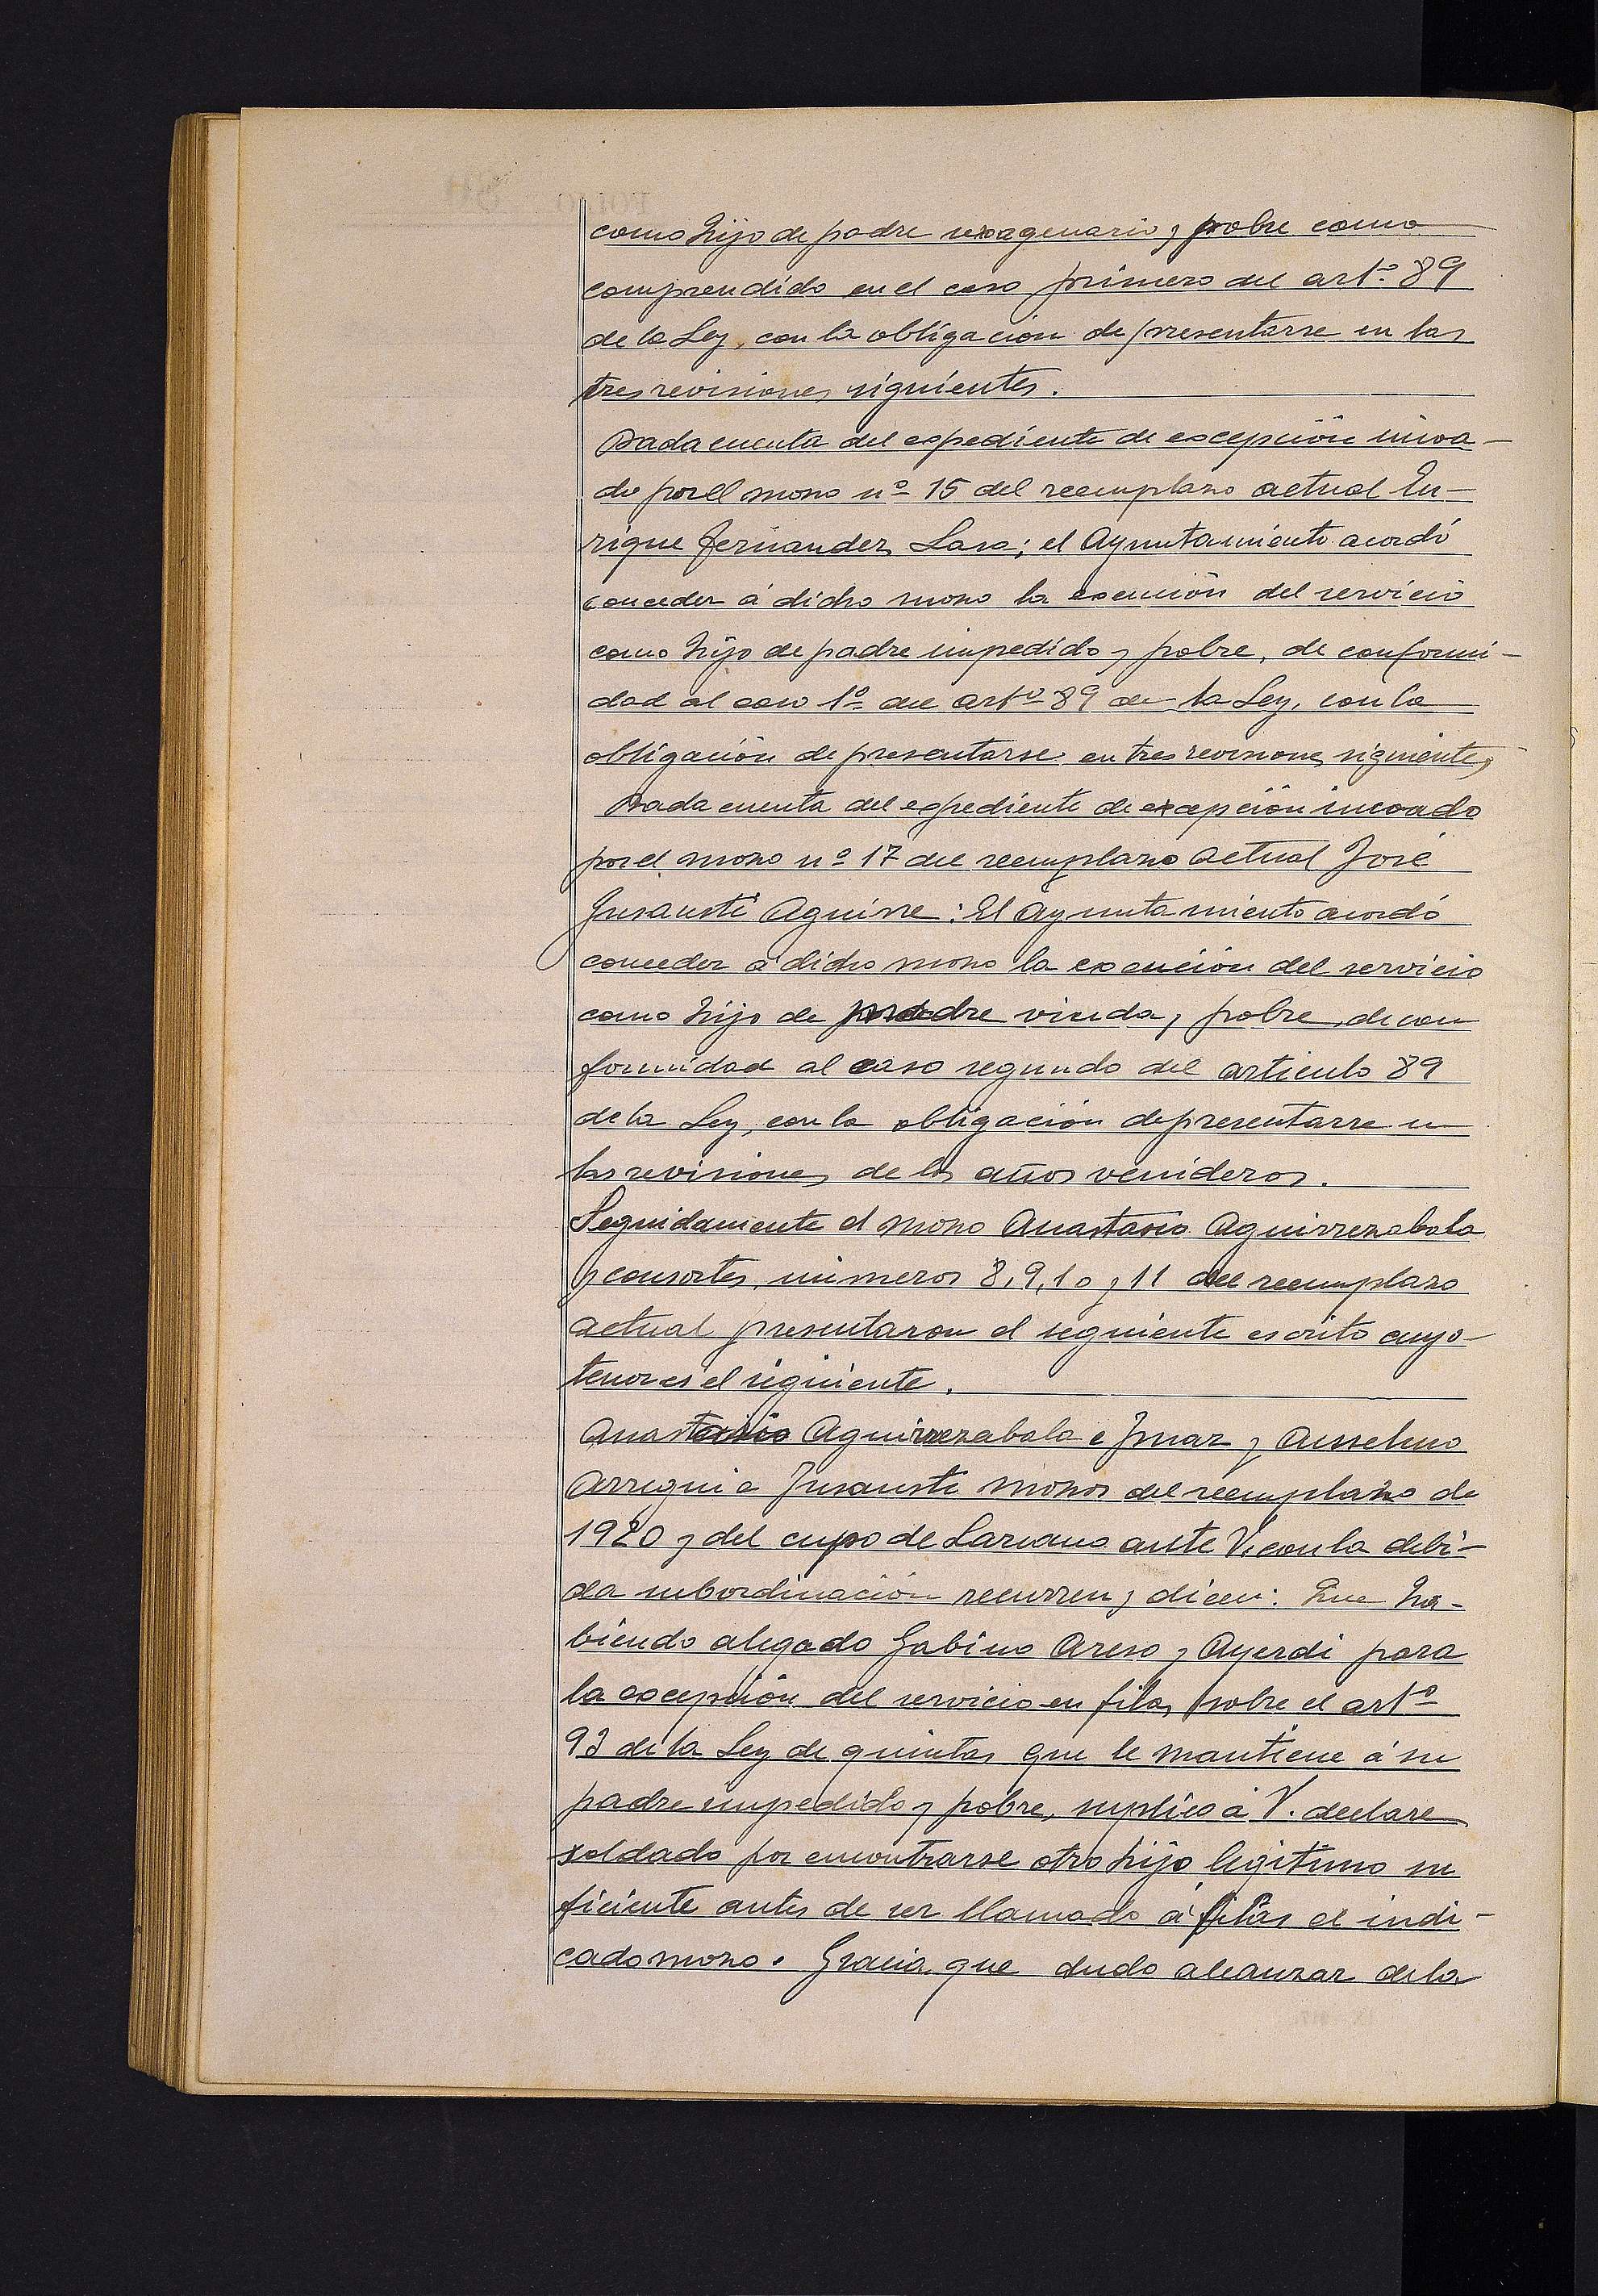 como hijo de padre sexagenario y pobre como
comprendido en el caso primero del artº 89
de la Ley, con la obligación de presentarse en las
tres revisiones siguientes.
Dada cuenta del espediente de escepción incoa-
do por el mozo nº 15 del reemplazo actual En-
rique Fernandez Lasa; el Ayuntamiento acordó
conceder á dicho mozo la esención del servicio
como hijo de padre impedido y pobre, de conformi-
dad al caso 1º del artº 89 de la Ley, con la
obligación de presentarse en tres revisiones siguientes
Dada cuenta del espediente de excepción incoado
por el mozo nº 17 del reemplazo actual José
Insausti Aguirre: El Ayuntamiento acordó
conceder á dicho mozo la exención del servicio
como hijo de madre viuda y pobre, de con
formidad al caso segundo del articulo 89
de la Ley, con la obligación de presentarse en
las revisiones de los años venideros.
Seguidamente el mozo Anastasio Aguirrezabala
y consortes, números 8, 9, 10 y 11 del reemplazo
actual presentaron el seguiente escrito cuyo
tenor es el siguiente.
Anastasio Aguirrezabala e Imaz y Anselmo
Arregui e Insausti mozos del reemplazo de
1920 y del cupo de Lazcano ante V. con la debi-
da subordinación recurren y dicen: Que ha-
biendo alegado Gabino Areso y Ayerdi para
la escepción del servicio en filas sobre el artº
93 de la Ley de quintas que le mantiene á su
padre impedido y pobre, suplico á V. declare
soldado por encontrarse otro hijo legitimo su
ficiente antes de ser llamado á filas el indi-
cado mozo. Gracia que dudo alcanzar de la